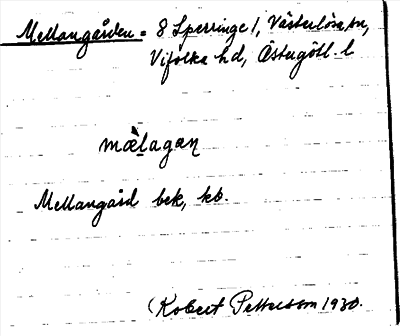 Mellangården = 8 Sperringe 1, Västerlösa sn,
Vifolka hd, Östergötl. l
mæ̀lagaṇ
Mellangård bek, kb.
(Robert Pettersson 1930.